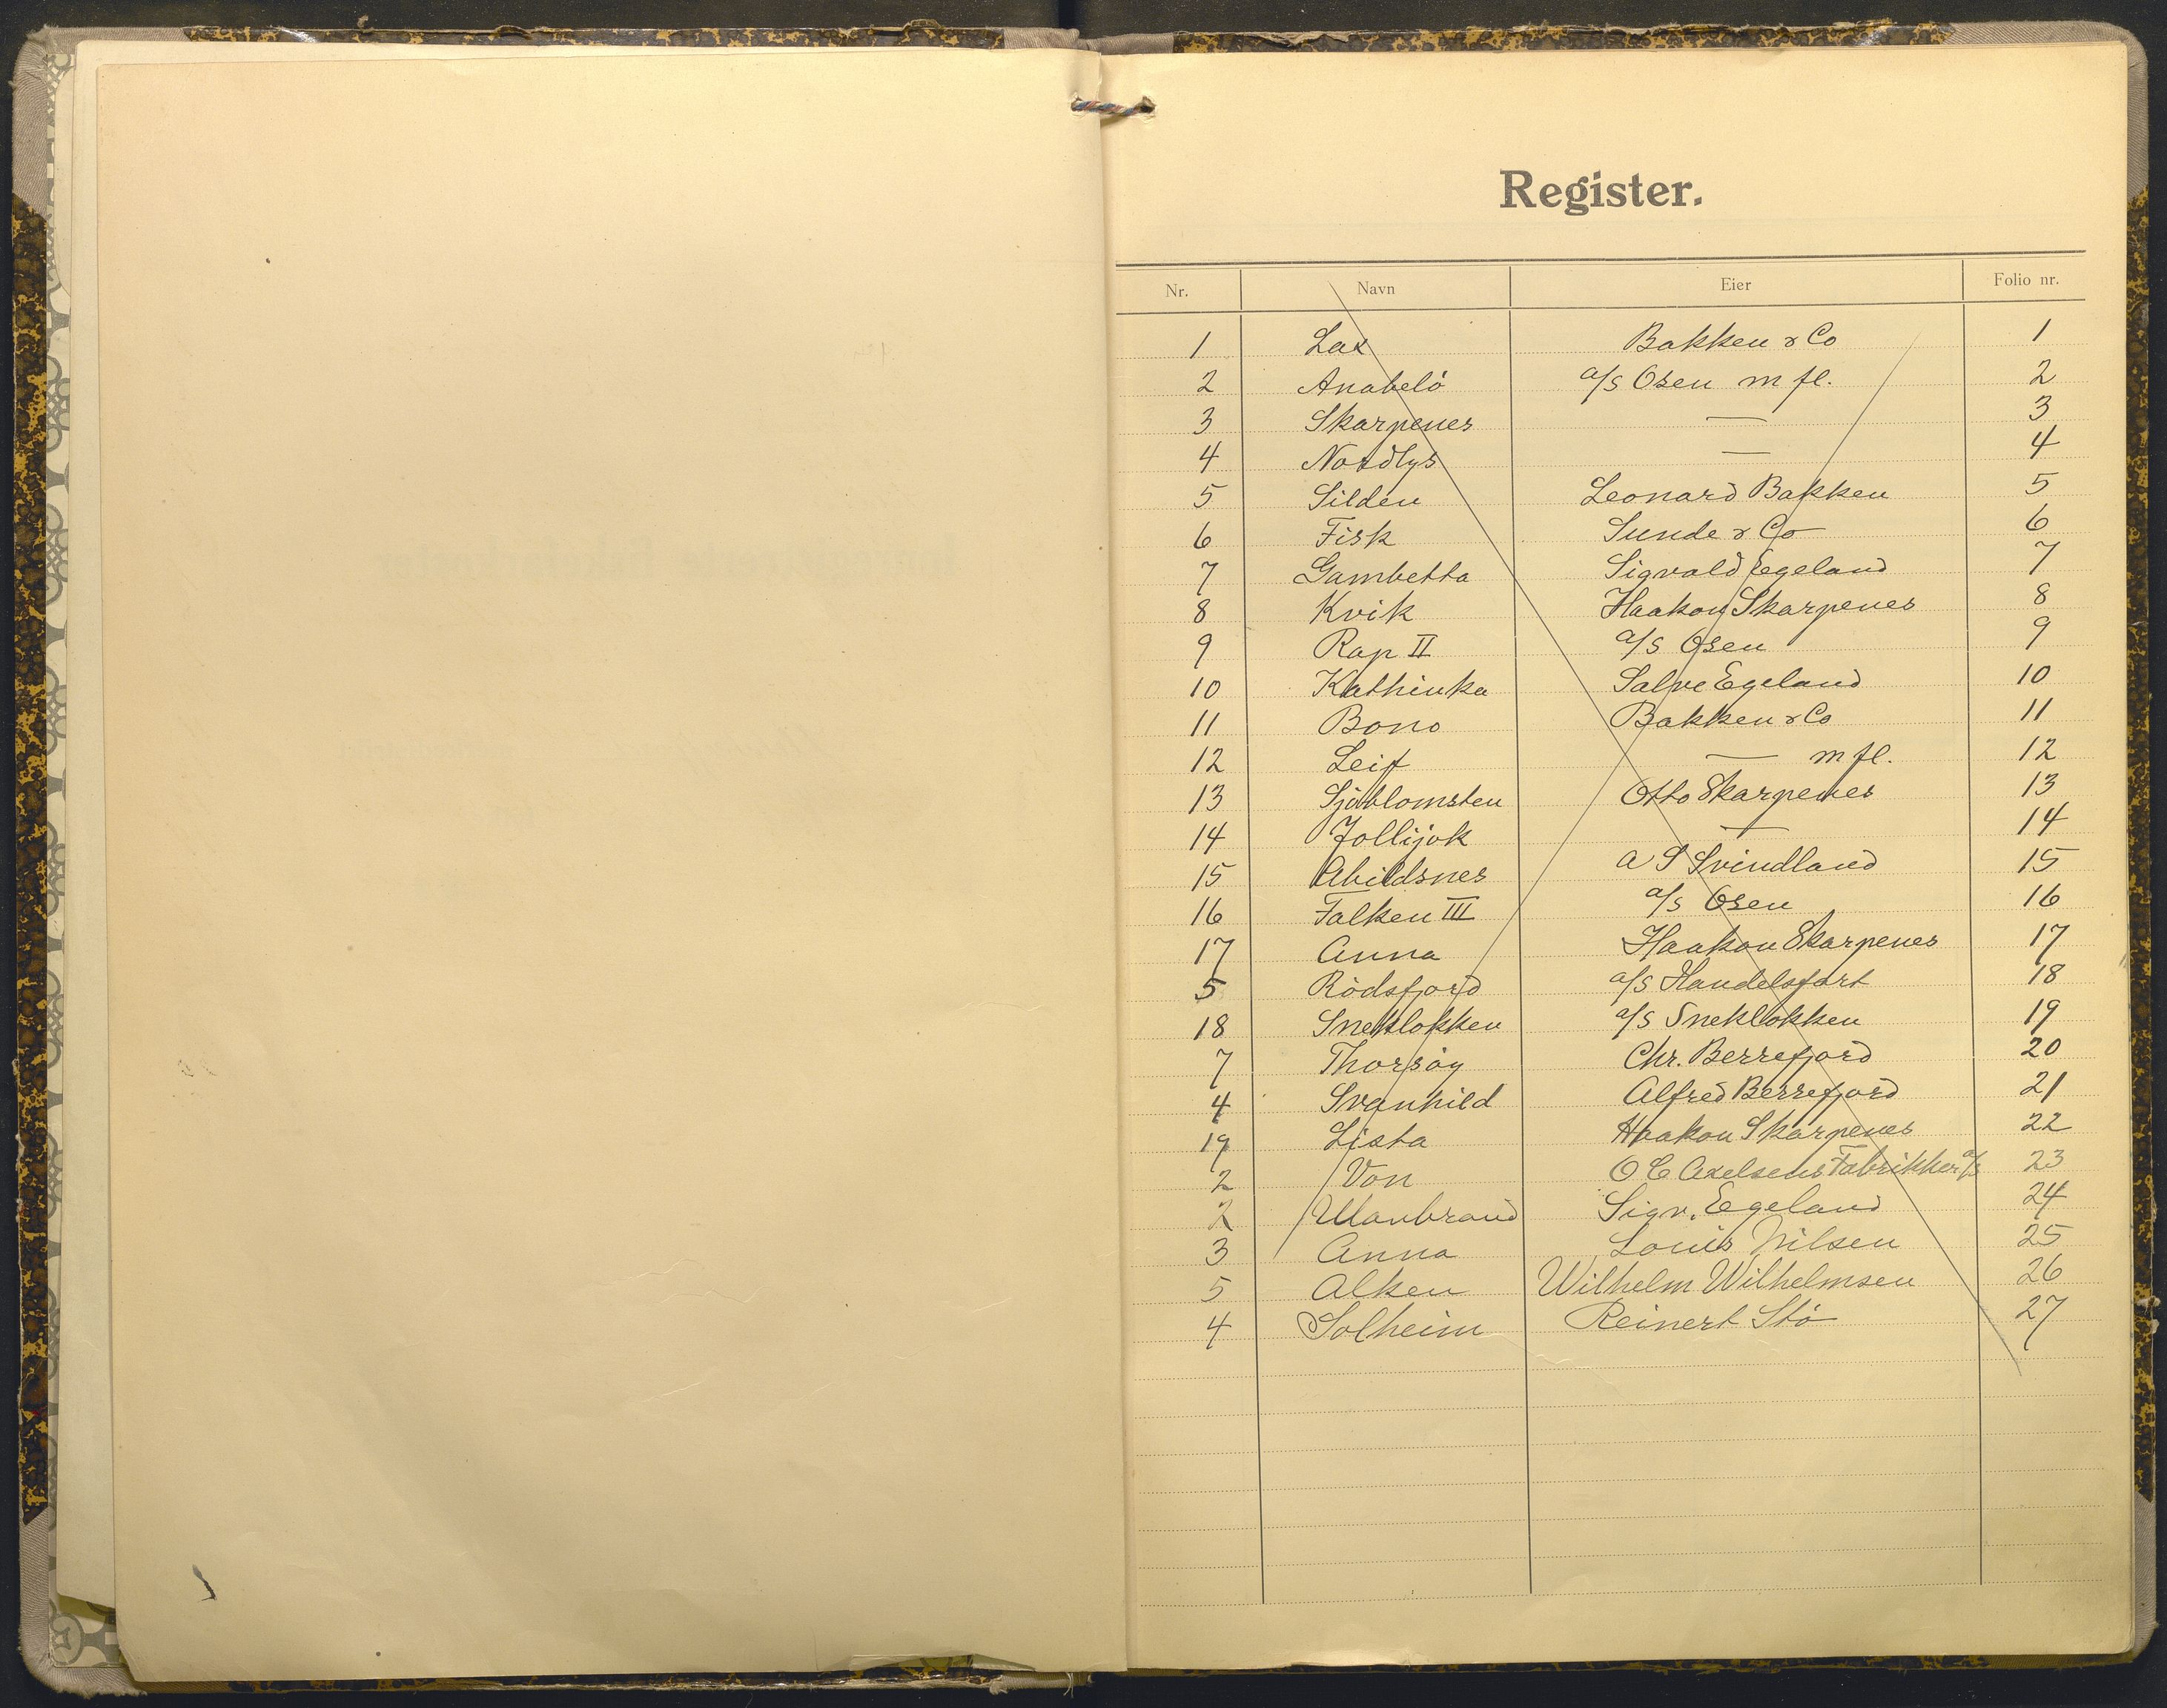 Register.
Nr. Navn Eier Folio nr.
1 Lax Bakken & Co 1
2 Anabelö a/s Osen m fl. 2
3 Skarpenes — 3
4 Nordlys — 4
5 Silden Leonard Bakken 5
6 Fisk Sunde & Co 6
7 Gambetta Sigvald Egeland 7
8 Kvik Haakon Skarpenes 8
9 Rap II a/s Osen 9
10 Kathinka Salve Egeland 10
11 Bono Bakken & Co 11
12 Leif — m fl. 12
13 Sjöblomsten Otto Skarpenes 13
14 Jollijok — 14
15 Abildsnes A S Svindland 15
16 Falken III a/s Osen 16
17 Anna Haakon Skarpenes 17
5 Rödsfjord a/s Handelsfart 18
18 Sneklokken a/s Sneklokken 19
7 Thorsöy Chr. Berrefjord 20
4 Svanhild Alfred Berrefjord 21
19 Lista Haakon Skarpenes 22
2 Von O C Axelsens Fabrikker a/s 23
2 Sigv. Egeland 24
3 Anna Louis Nilsen 25
5 Alken Wilhelm Wilhelmsen 26
4 Solheim Reinert Stö 27